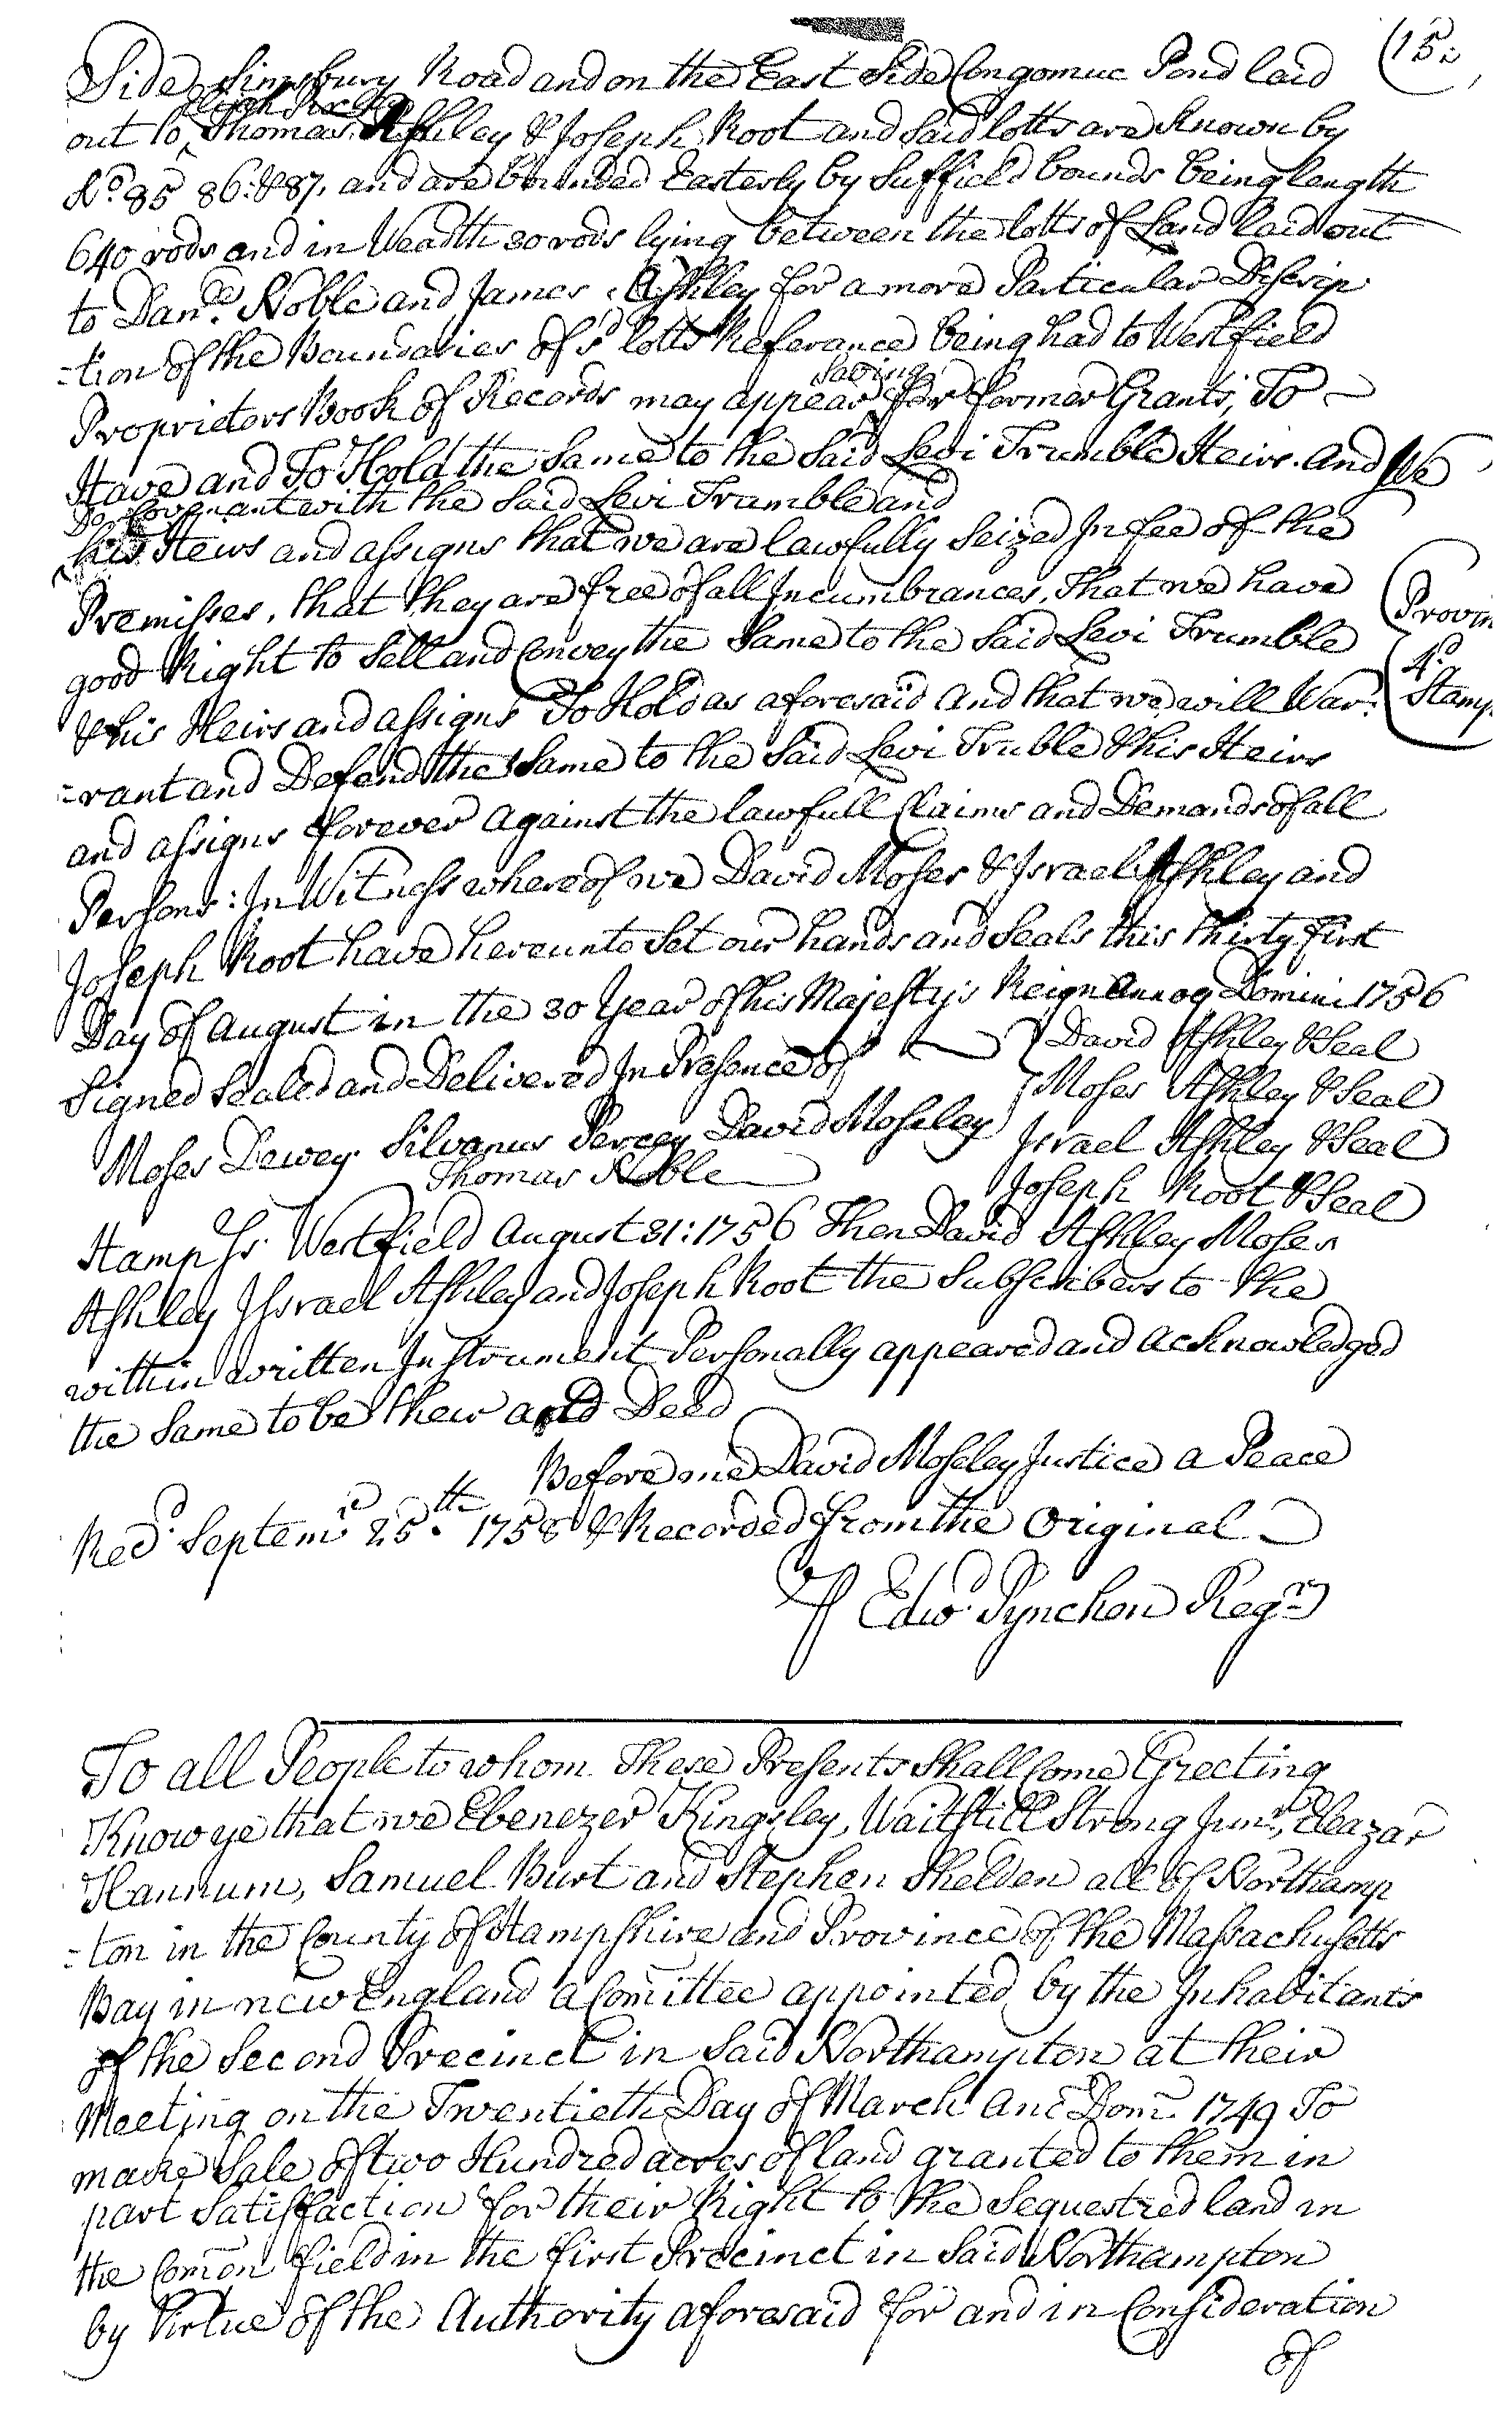 (15:
Side Simsbury Road and on the East Side Congomuc Pond laid
out to Thomas Ashley & Joseph Root and Said lotts are Known by
No. 85 86: & 87, and are bounded Easterly by Suffield bounds being length
640 rods and in Weadth 30 rods lying between the lotts of Land laid out
to Danll. Noble and James Ashley for a more Particular Discrip
-tion of the Boundaries of sd lotts Referance being had to Westfield
Saving
Proprietors Book of Records may appear for former Grants, To
Have and To Hold the Same to the Said Levi Trumble Heirs. And We
Do Covenant with the Said Levi Trumble and
his Heirs and assigns that we are lawfully Seized In fee of the
Premisses, that they are free of all Incumbrances, That we have
good Right to Sell and Convey the Same to the Said Levi Trumble
& his Heirs and assigns To Hold as aforesaid and that we will War:
-rant and Defend the Same to the Said Levi Truble & his Heirs
and assigns forever against the lawfull Claims and Demands of all
Persons: In Witness whereof we David Moses & Israel Ashley and
Joseph Root have hereunto Set our hands and Seals this thirty first
Day of August in the 30 Year of his Majesty's Reign Annoq Domini 1756
Signed Sealed and Delivered In Presence of
Moses Dewey. Silvanus Percey David Moseley
Thomas Noble
David Ashley & Seal
Moses Ashley & Seal
Israel Ashley & Seal
Joseph Root & Seal
Provin
4d
Stamp
Hamp Ss. Westfield August 31: 1756 Then David Ashley Moses
Ashley Israel Ashley and Joseph Root the Subscribers to the
within written Instrument Personally appeared and acknowledged
the Same to be their act & Deed
Before me David Moseley Justice a Peace
Recd. Septemr 25th. 1758 & Recorded from the Original
P Edwd. Pynchon Regr.
To all People to whom These Presents Shall Come Greeting
Know ye that we Ebenezer Kingsley, Waitstill Strong Junr., Eleazar
Hannum, Samuel Burt and Stephen Shelden all of Northamp
-ton in the County of Hampshire and Province of the Massachusetts
Bay in new England a Comittee appointed by the Inhabitants
of the Second Precinct in Said Northampton at their
Meeting on the Twentieth Day of March Ano Domi. 1749 To
make Sale of two Hundred acres of land granted to them in
part Satisfaction for their Right to the Sequestred land in
the Comon field in the first Precinct in Said Northampton
by Virtue of the Authority aforesaid for and in Consideration
of